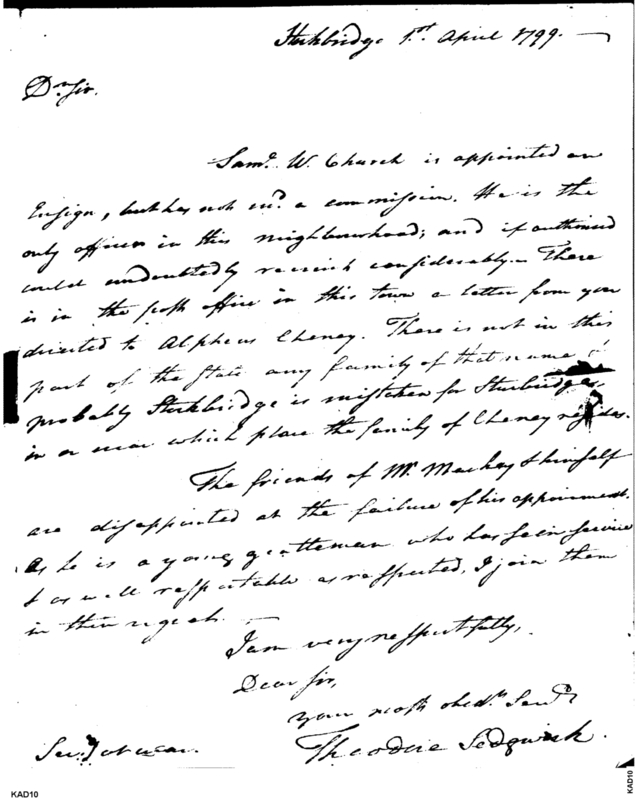 Stockbridge 1st. April 1799.
Dr. Sir.
Saml. W. Church is appointed an
Ensign, but has not recd. a commission. He is the
only officer in this neighbourhood; and if authorised
could undoubtedly recruit considerably. There
is in the post office in this town a letter from you
directed to Alpheus Cheney. There is not in this
part of the state any family of that name
probably Stockbridge is mistaken for Sturbridge,
in or near which place the family of Cheney resides.
The friends of Mr. Mackay & himself
are disappointed at the failure of his appointment.
As he is a young gentleman who has seen service
& as well respectable as respected, I join them
in their regret.
I am very respectfully,
Dear Sir,
your most obedt. Servt.
Theodore Sedgwick.
Secy.
KAD10
KAD10